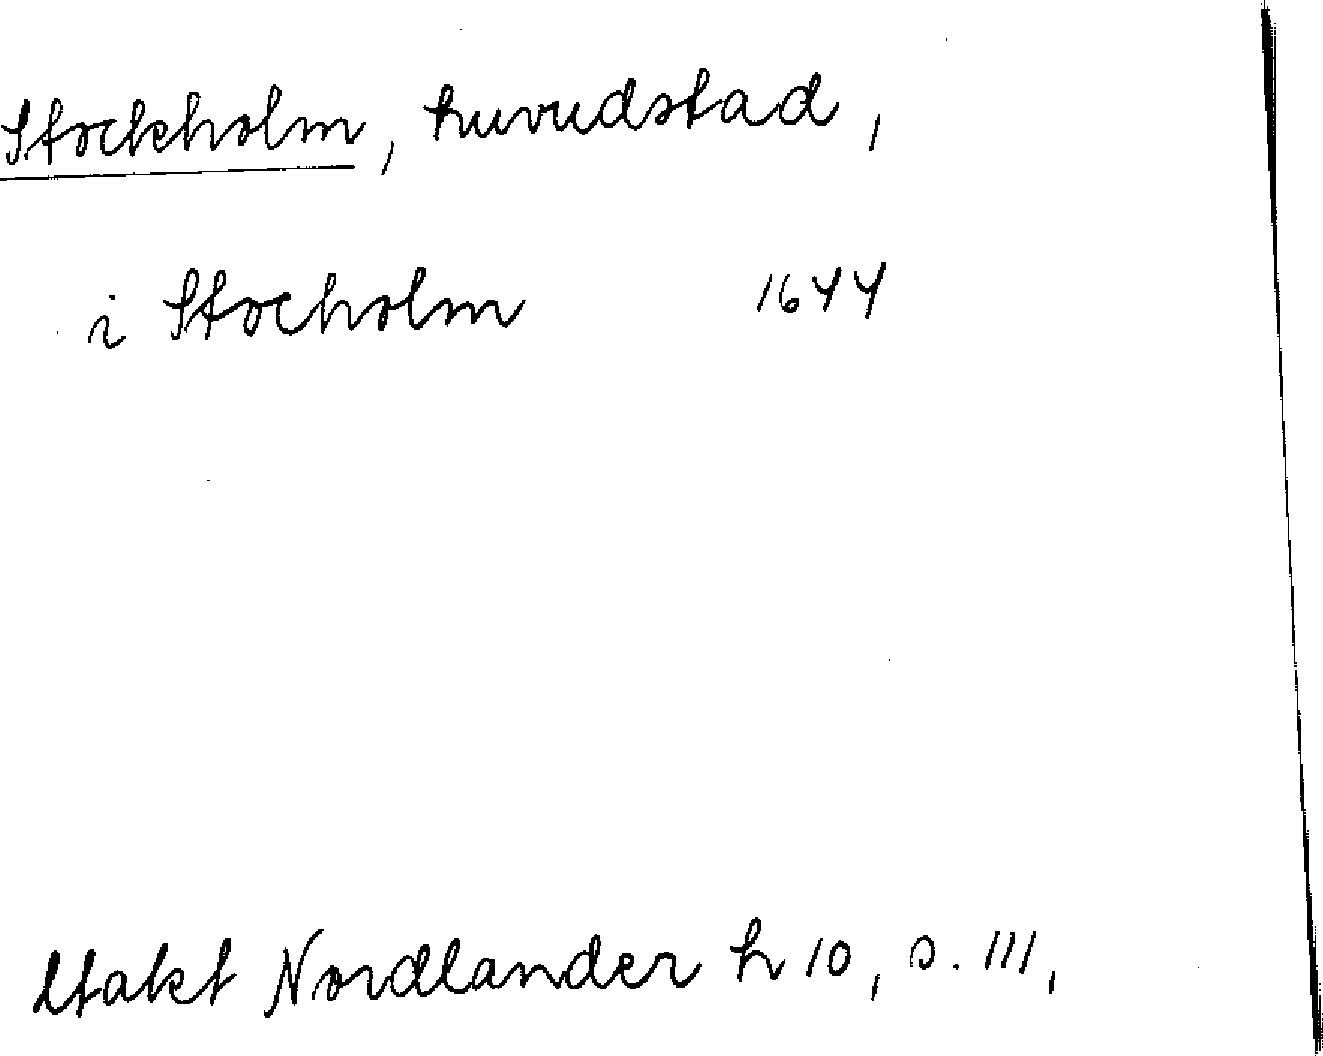 Stockholm, huvudstad,
i Stocholm 1644
Utakt Nordlander h 10, s. 111,